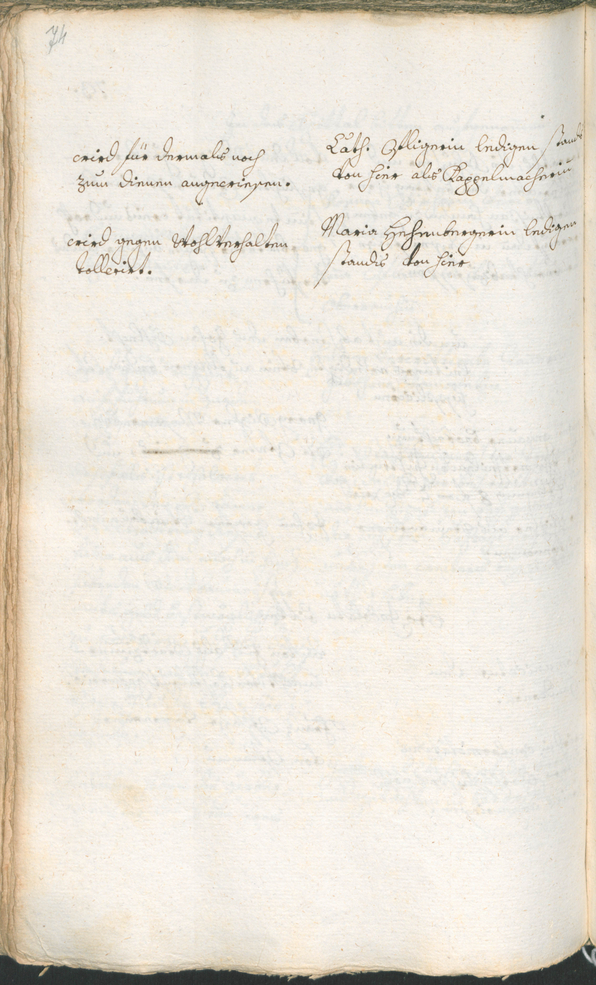 74
wird für dermals noch
zum dienen angewiesen.
Cath. Ostligerin ledigen stands
von hier als Kappelmacherin
wird gegen Wohlverhalten
tollerirt.
Maria Hechenbergerin ledigen
standts von hier